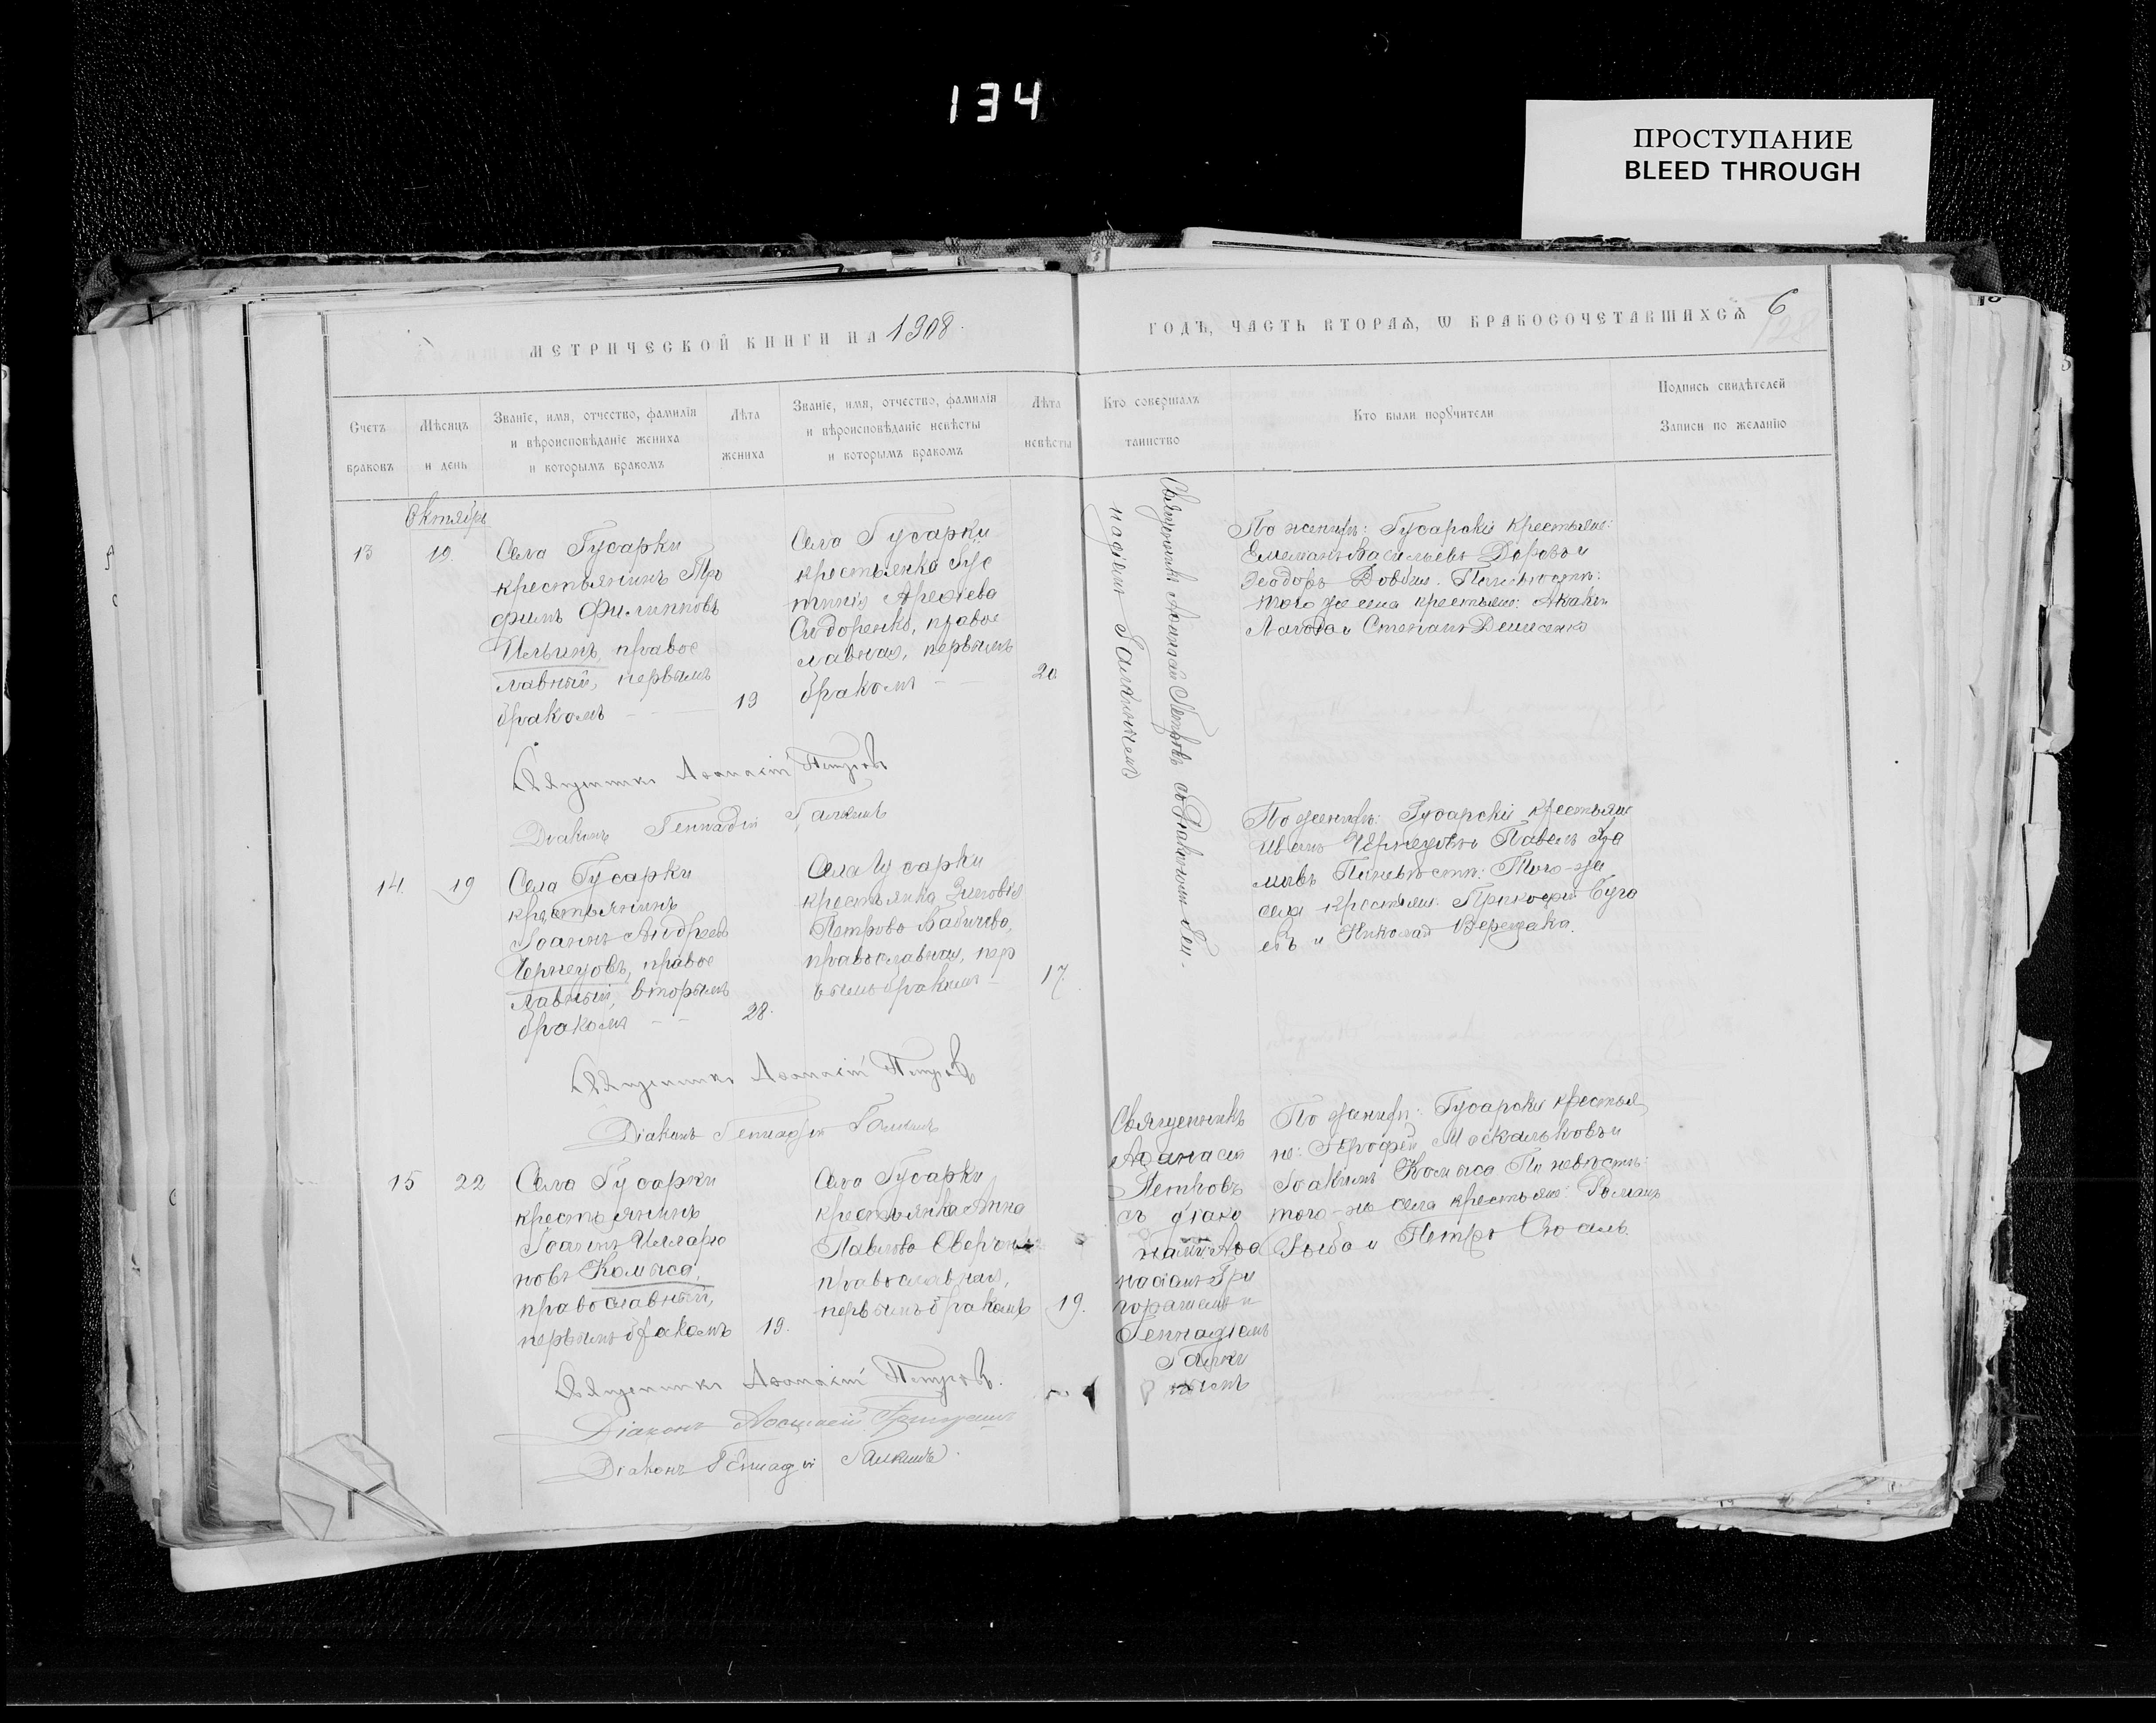 134
ПРОСТУПАНИЕ
BLEED THROUGH
МЕТРИЧЕСКОЙ КНИГИ НА 1908
ГОДЪ, ЧАСТЬ ВТОРАЯ, Ѡ БРАКОСОЧЕТАВШИХСЯ
6
128
Счетъ
браковъ
Мѣсяцъ
и день
Званіе, имя, отчество, фамилія
и вѣроисповѣданіе жениха
и которымъ бракомъ
Лѣта
жениха
Званіе, имя, отчество, фамилія
и вѣроисповѣданіе невѣсты
и которымъ бракомъ
Лѣта
невѣсты
Кто совершалъ
таинство
Кто были порꙋчители
Подпись свидѣтелей
Записи по желанію
Октябрь
13
19.
Села Гусарки
крестьянинъ Тро
фимъ Филипповъ
Ильинъ, правос
лавный, первымъ
бракомъ
19
Села Гусарки
крестьянка Іус
тинія Ареѳіева
Сидоренко, правос
лавная, первымъ
бракомъ
20
Священникъ Аѳанасій Петровъ съ діакономъ Ген-
надіемъ Галкинымъ
По женихѣ: Гусарскіе крестьяне:
Васильевъ и
Ѳеодоръ Довбня. По невѣстѣ:
того же села крестьяне: Акакій
и Стефанъ Денисенко
Священникъ Аѳанасій Петровъ
Діаконъ Геннадій Галкинъ
14.
19
Села Гусарки
крестьянинъ
Іоаннъ Андреевъ
Чернецовъ, правос
лавный, вторымъ
бракомъ
28.
Села Гусарки
крестьянка Зиновія
Петрова Бабичева,
православная, пер
вымъ бракомъ
17.
По женихѣ: Гусарскіе крестьяне
Иванъ Чернецовъ и Павелъ
По невѣстѣ: Того-же
села крестьяне: Прокофій Буга
евъ и Николай Верещака.
Священникъ Аѳанасій Петровъ
Діаконъ Геннадій Галкинъ
15
22
Села Гусарки
крестьянинъ
Іоаннъ Илларіо
новъ Комыса,
православный,
первымъ бракомъ
19.
Села Гусарки
крестьянка Анна
Павлова
православная,
первымъ бракомъ
19.
Священникъ
Аѳанасій
Петровъ
съ діако
нами Аѳа
насіемъ Гри
и
Геннадіемъ
Галки
нымъ
По женихѣ: Гусарскіе крестья
не: Ерофей Москальковъ и
Іоакимъ Комыса По невѣстѣ:
того-же села крестьяне: Романъ
Рыба и Петръ
Священникъ Аѳанасій Петровъ.
Діаконъ
Діаконъ Геннадій Галкинъ.